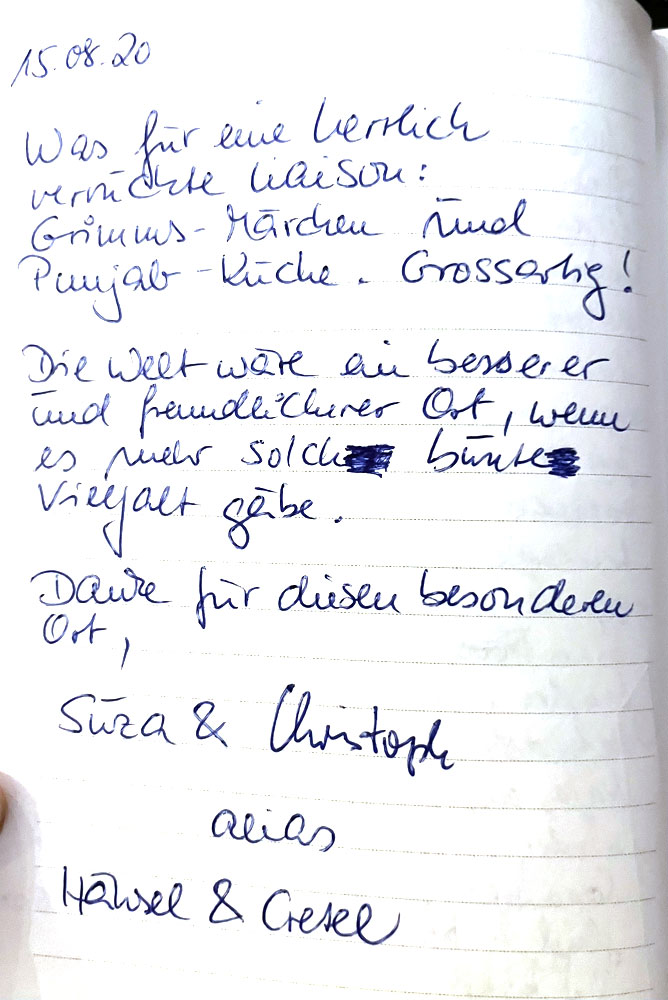 15.08.20
Was für eine herrlich
verrückte Liaison:
Grimms-Märchen und
Punjab-Küche. Grossartig!
Die Welt wäre ein besserer
und freundlicherer Ort, wenn
es mehr solch bunte
Vielfalt gäbe.
Danke für diesen besonderen
Ort,
Suza & Christoph
alias
Hänsel & Gretel